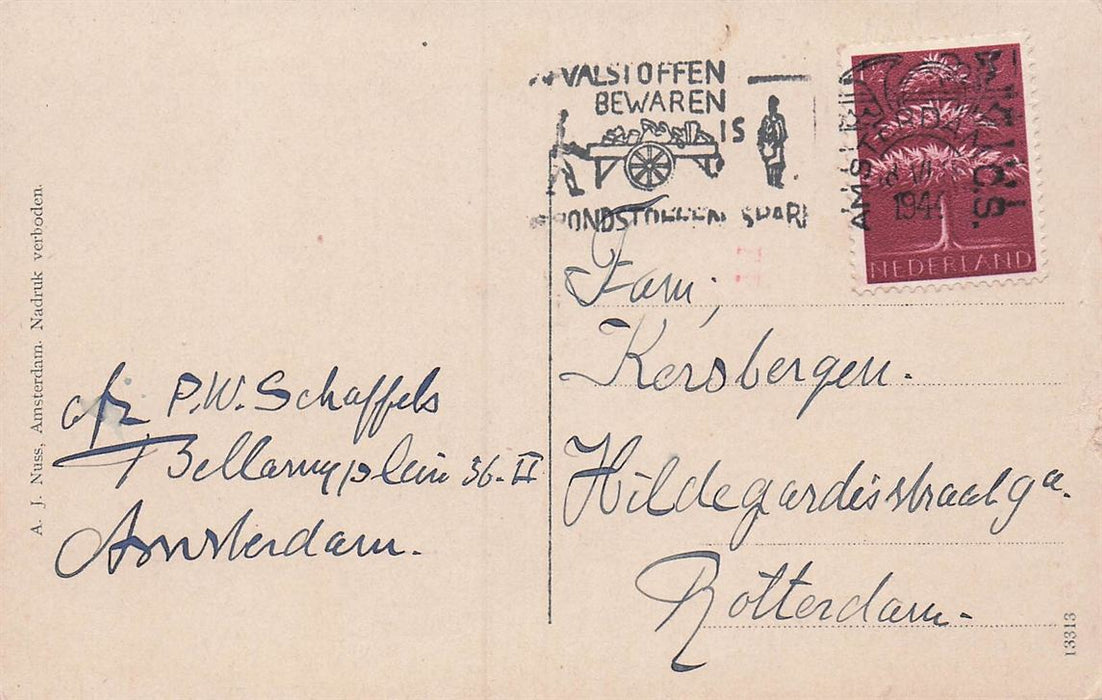 VALSTOFFEN
BEWAREN
IS
AMSTERDAM
1944
C.S.
NEDERLAND
Fam;
Kersbergen.
Hildegardisstraat 9a.
Rotterdam.
afz P.W. Schaffels
Bellamyplein 36-II
Amsterdam.
A. J. Nuss, Amsterdam. Nadruk verboden.
13313